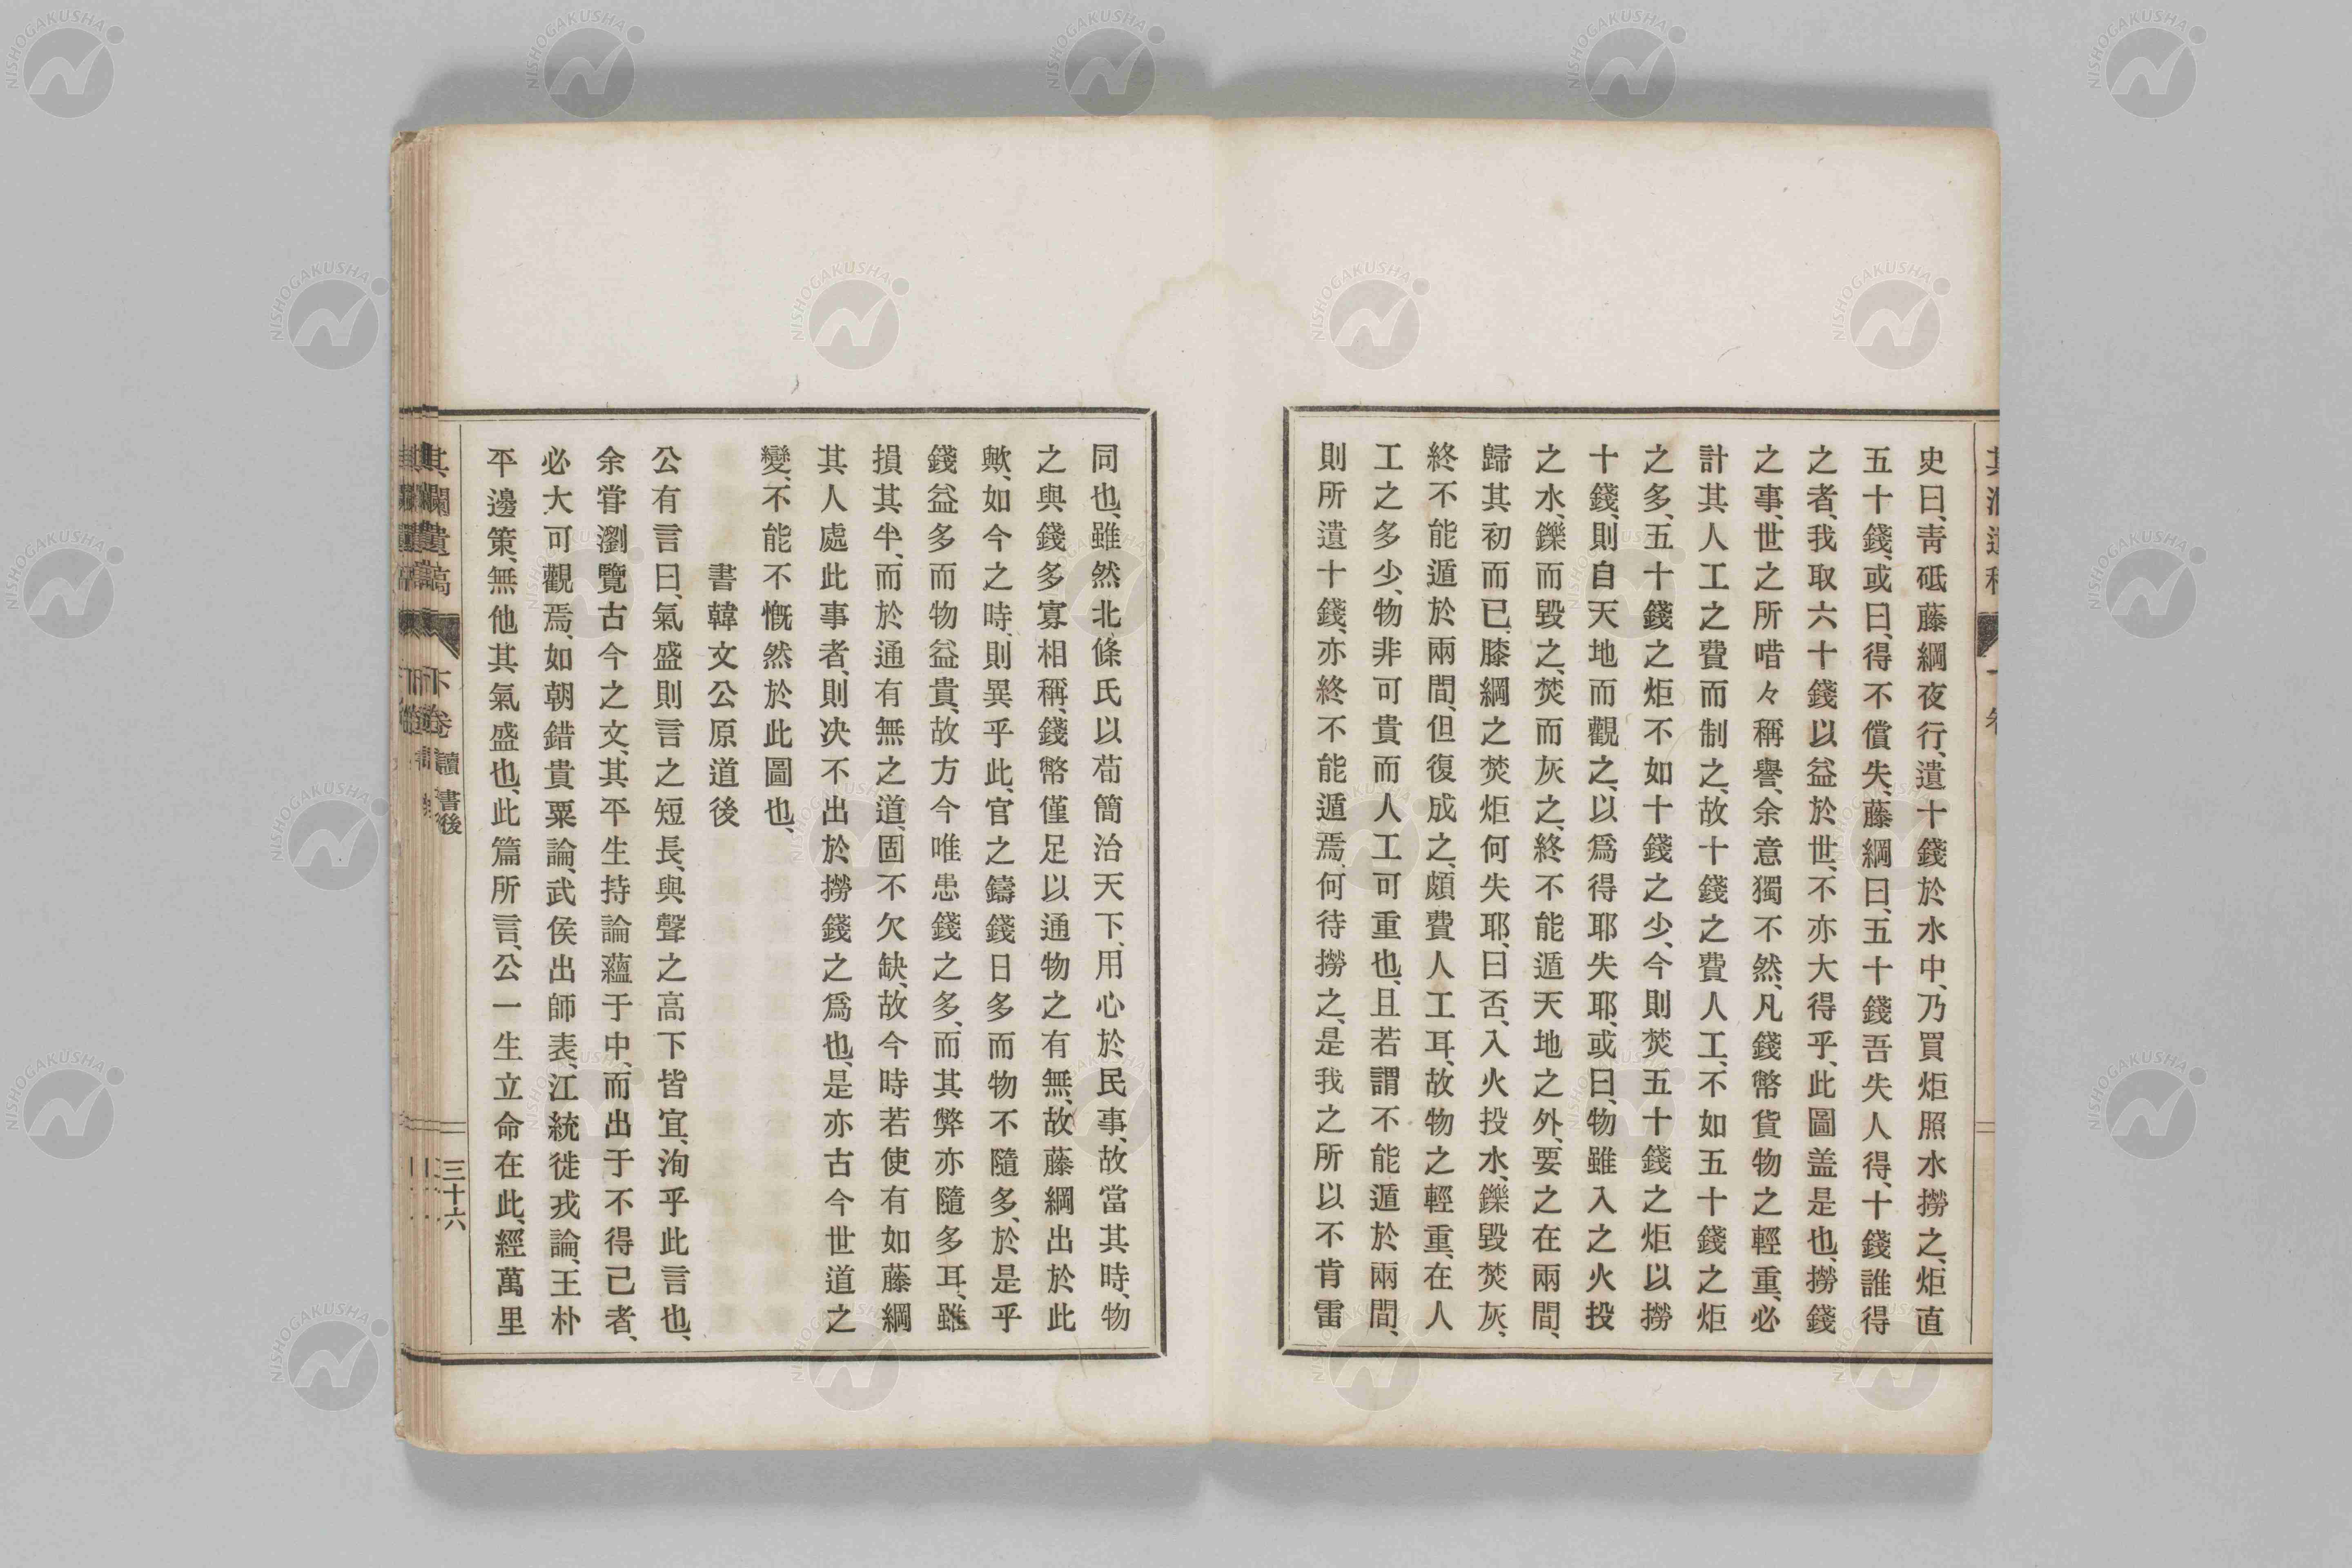 史曰、靑砥藤綱夜行、遺十錢於水中、乃買炬照水撈之、炬直
五十錢、或曰、得不償失、藤綱曰、五十錢吾失人得、十錢誰得
之者、我取六十錢以益於世、不亦大得乎、此圖盖是也、撈錢
之事、世之所唶々稱譽、余意獨不然、凡錢幣貨物之輕重、必
計其人工之費而制之、故十錢之費人工、不如五十錢之炬
之多、五十錢之炬不如十錢之少、今則焚五十錢之炬以撈
十錢、則自天地而觀之、以爲得耶失耶、或曰、物雖入之火投
之水、鑠而毀之、焚而灰之、終不能遁天地之外、要之在兩間、
歸其初而已、膝綱之焚炬何失耶、曰否、入火投水、鑠毀焚灰、
終不能遁於兩間、但復成之、頗費人工耳、故物之輕重、在人
工之多少、物非可貴而人工可重也、且若謂不能遁於兩間、
則所遺十錢、亦終不能遁焉、何待撈之、是我之所以不肯雷
同也、雖然北條氏以苟簡治天下、用心於民事、故當其時、物
之與錢多寡相稱、錢幣僅足以通物之有無、故藤綱出於此
歟、如今之時、則異乎此、官之鑄錢日多而物不隨多、於是乎
錢益多而物益貴、故方今唯患錢之多、而其弊亦隨多耳、雖
損其半、而於通有無之道、固不欠缺、故今時若使有如藤綱
其人處此事者、則决不出於撈錢之爲也、是亦古今世道之
變、不能不慨然於此圖也、
書韓文公原道後
公有言曰、氣盛則言之短長、與聲之高下皆宜、洵乎此言也、
余嘗瀏覽古今之文、其平生持論蘊于中、而出于不得已者、
必大可觀焉、如朝錯貴粟論、武侯出師表、江統徙戎論、王朴
平邊策、無他其氣盛也、此篇所言、公一生立命在此、經萬里
下卷 讀 書後
三十六